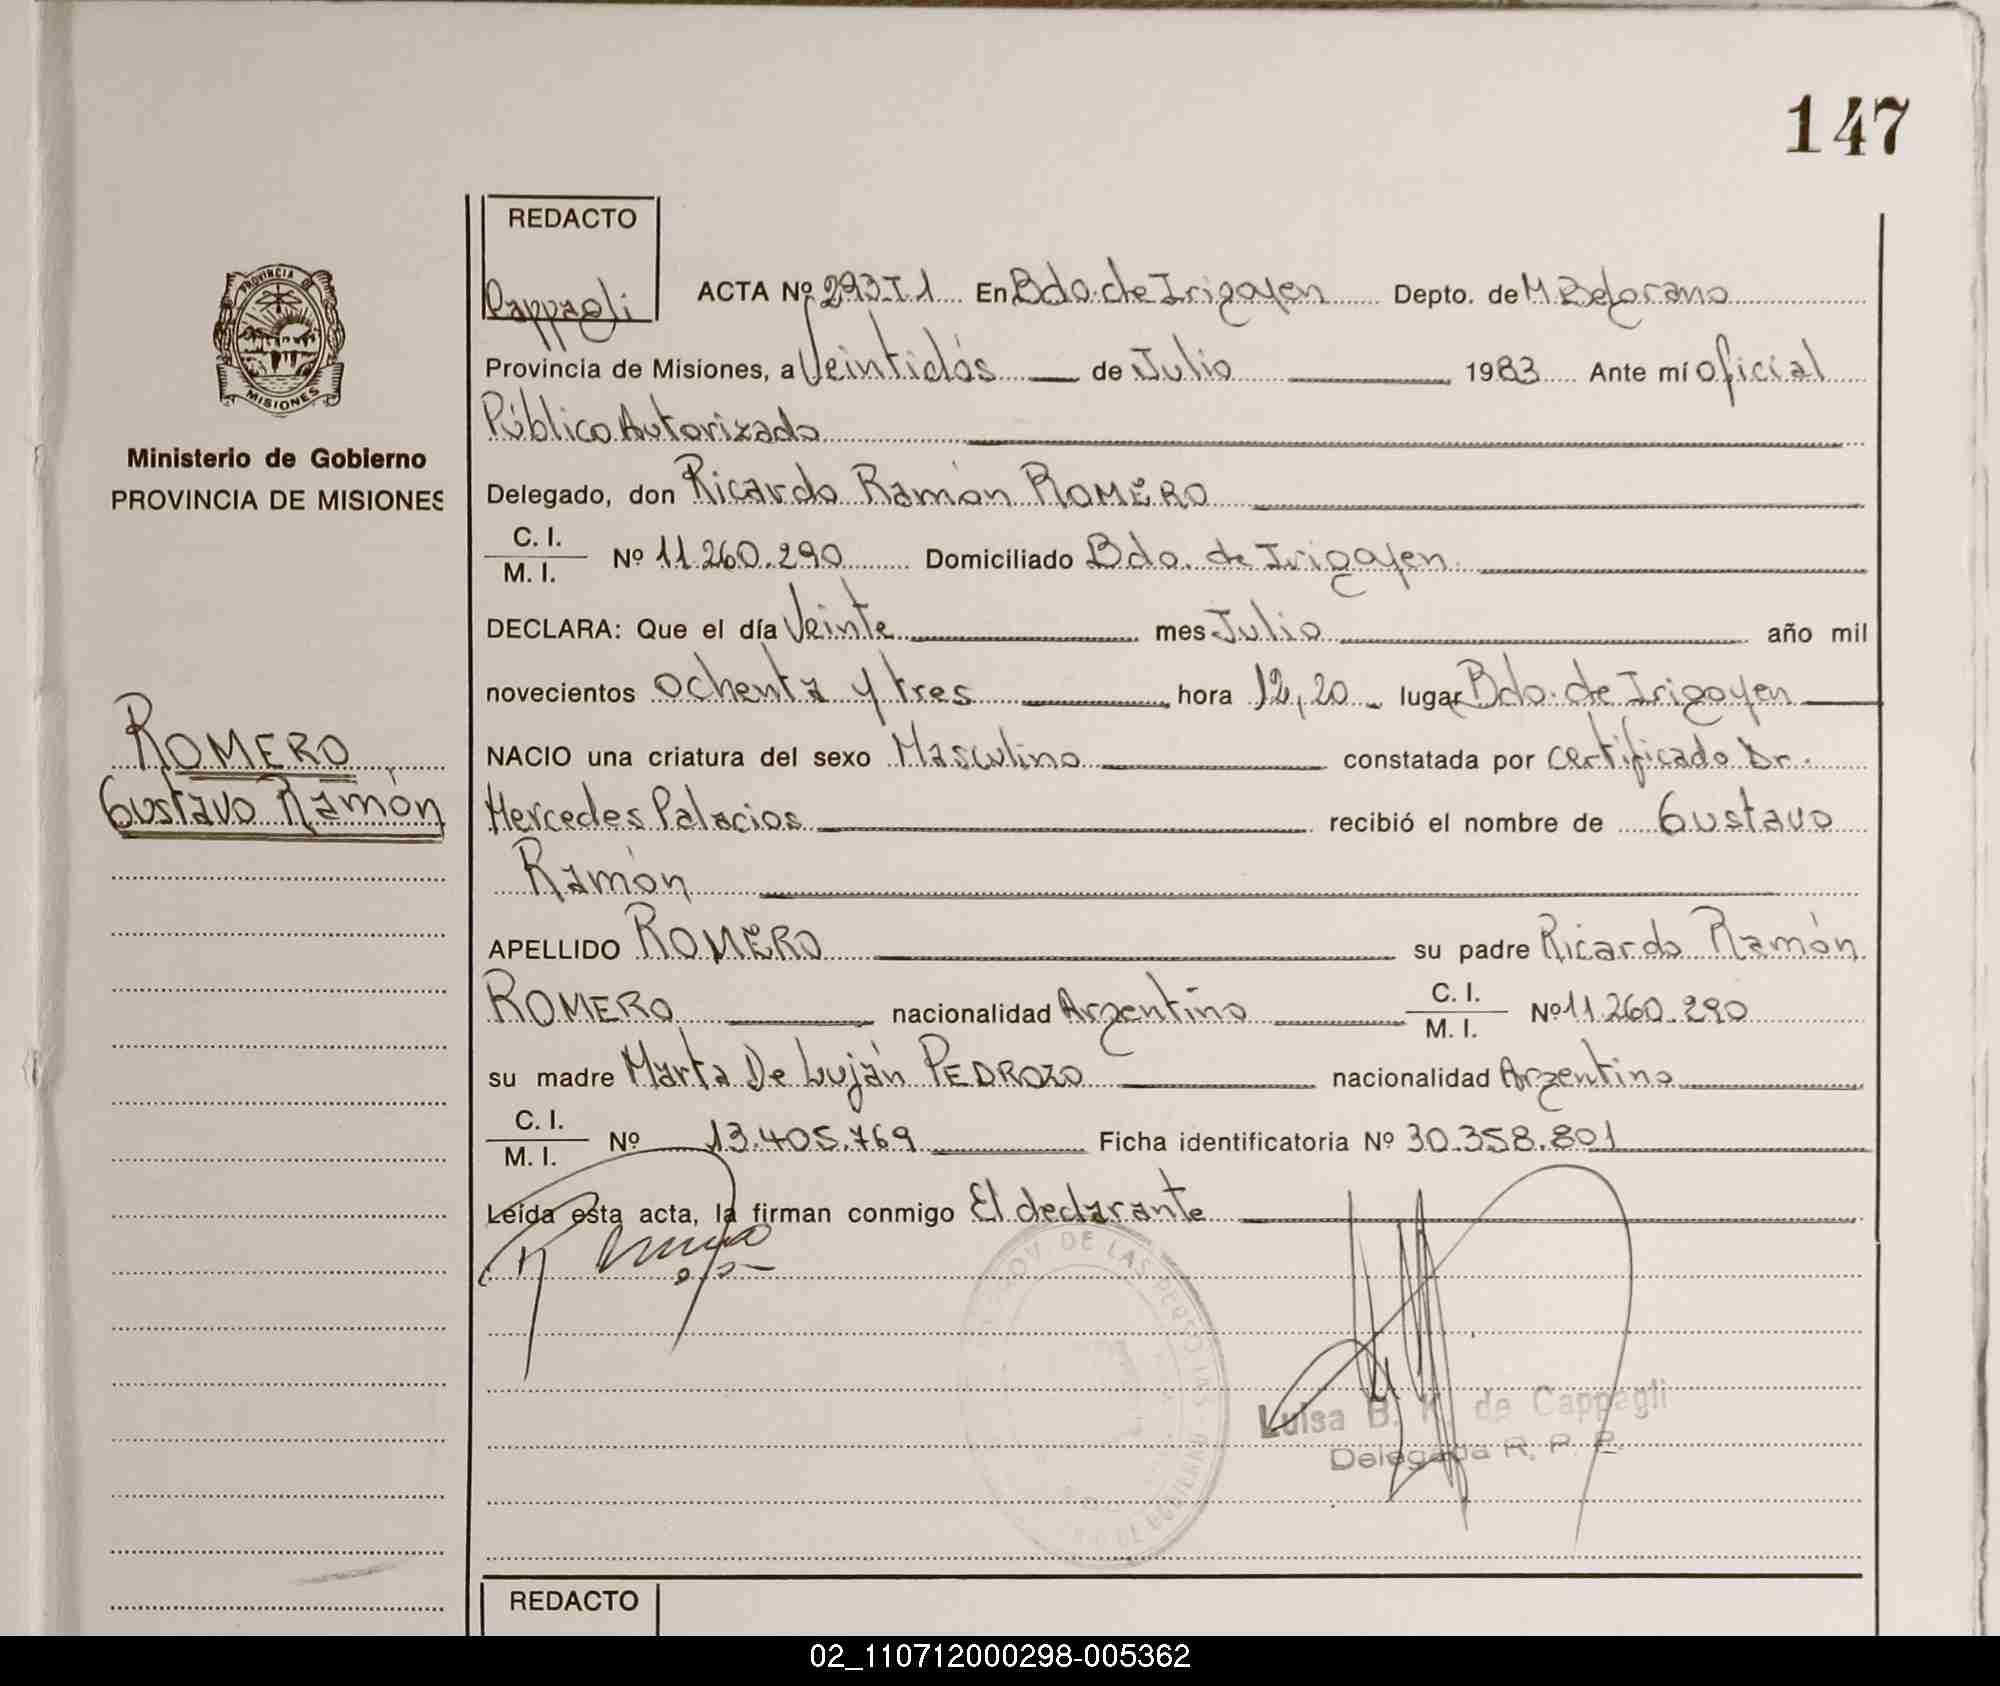 147
REDACTO
Cappagli
ACTA Nº 293.T.1 En Bdo. de Irigoyen Depto. de M Belgrano
Provincia de Misiones, a Veintidós de Julio 1983 Ante mí oficial
Público Autorizado
Delegado, don Ricardo Ramón ROMERO
C. I.
M. I.
Nº 11.260.290 Domiciliado Bdo. de Irigoyen
DECLARA: Que el día Veinte mes Julio año mil
novecientos ochenta y tres hora 12,20 lugar Bdo. de Irigoyen
NACIO una criatura del sexo Masculino constatada por certificado Dr.
Mercedes Palacios recibió el nombre de Gustavo
Ramón
APELLIDO ROMERO su padre Ricardo Ramón
ROMERO nacionalidad Argentino C. I.
M. I. Nº 11.260.290
su madre Marta De Luján PEDROZO nacionalidad Argentina
C. I.
M. I.
Nº 13.405.769 Ficha identificatoria Nº 30.358.801
Leída esta acta, la firman conmigo El declarante
DE LAS PERSONAS
Luisa B. K. de Cappagli
Delegada R. P. P.
REDACTO
PROVINCIA DE
MISIONES
Ministerio de Gobierno
PROVINCIA DE MISIONES
ROMERO
Gustavo Ramón
02_110712000298-005362